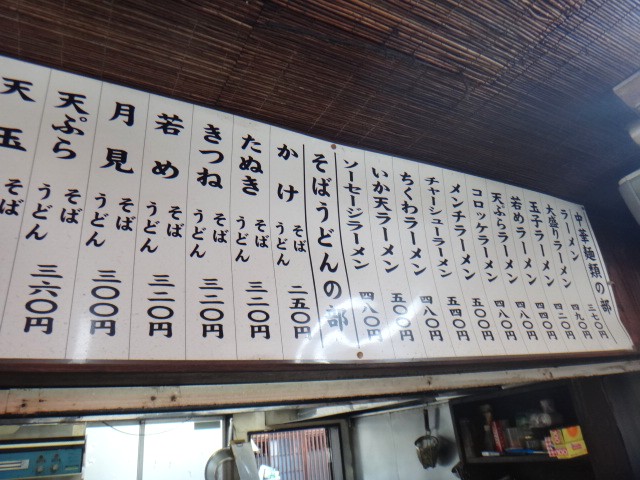 中華麺類の部
ラーメン 三七〇円
大盛りラーメン 四九〇円
玉子ラーメン 四二〇円
若めラーメン 四四〇円
天ぷらラーメン 四八〇円
コロッケラーメン 四八〇円
メンチラーメン 五〇〇円
チャーシューラーメン 五四〇円
ちくわラーメン 四八〇円
いか天ラーメン 五〇〇円
ソーセージラーメン 四八〇円
そばうどんの部
かけ そば うどん 二五〇円
たぬき そば うどん 三二〇円
きつね そば うどん 三二〇円
若め そば うどん 三二〇円
月見 そば うどん 三〇〇円
天ぷら そば うどん 三六〇円
天玉 そば